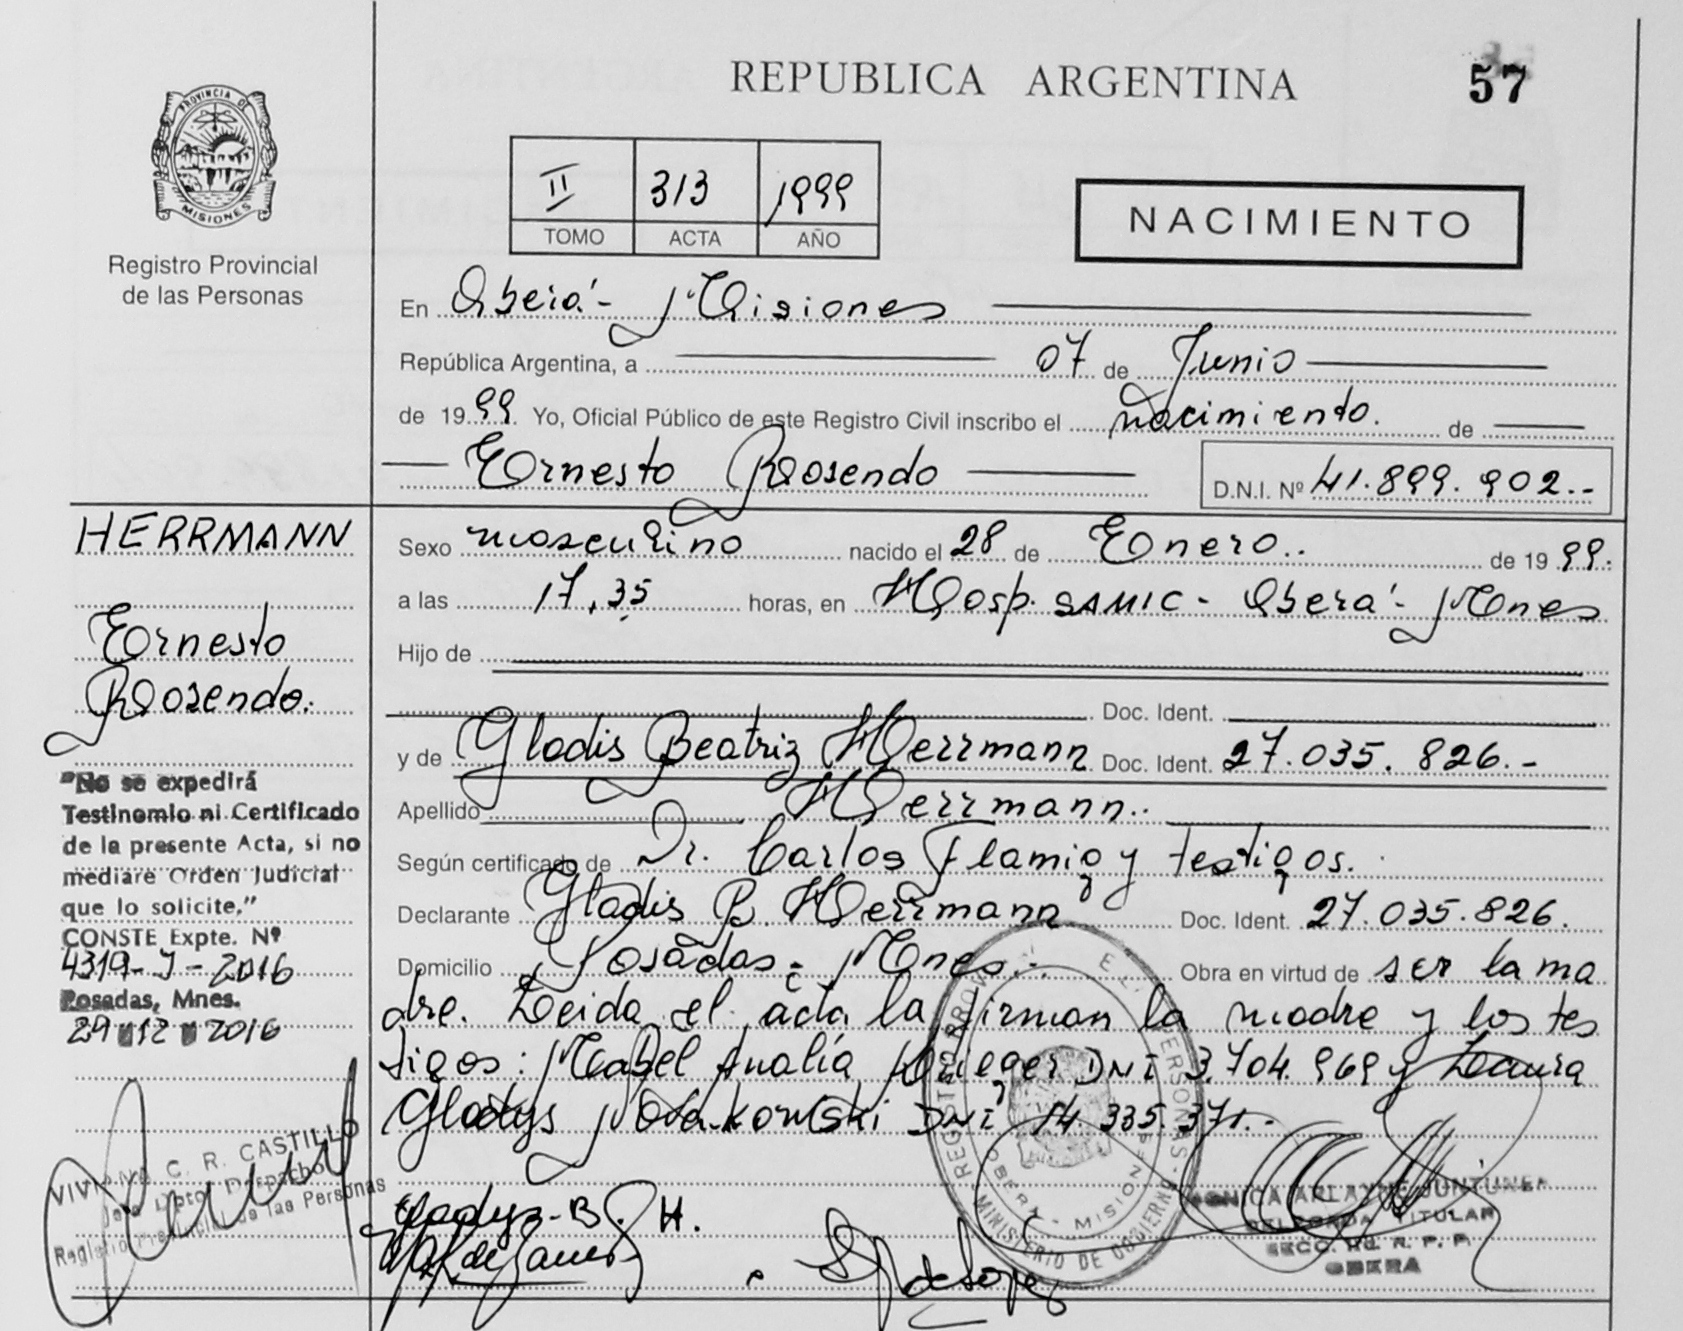 REPUBLICA ARGENTINA
57
PROVINCIA DE
MISIONES
Registro Provincial
de las Personas
II 313 1999
TOMO ACTA AÑO
NACIMIENTO
En Oberá - Misiones
República Argentina, a 07 de Junio
de 1999. Yo, Oficial Público de este Registro Civil inscribo el nacimiento. de
Ernesto Rosendo
D.N.I. Nº 41.899.902.-
HERRMANN
Ernesto
Rosendo.
Sexo masculino nacido el 28 de Enero.. de 1999.
a las 17,35 horas, en Hosp. SAMIC - Oberá - Mnes
Hijo de
Doc. Ident.
y de Gladis Beatriz Herrmann Doc. Ident. 27.035.826.-
Apellido Herrmann.
Según certificado de Dr. Carlos y testigos.
Declarante Gladis B. Herrmann Doc. Ident. 27.035.826.
Domicilio Posadas - Mnes. Obra en virtud de ser la ma
dre. Leida el acta la firman la madre y los tes
tigos: Mabel Analía Krieger DNI 3.704.969 y Laura
Gladys DNI 14.335.371.-
"No se expedirá
Testinomio ni Certificado
de la presente Acta, si no
mediare Orden Judicial
que lo solicite."
CONSTE Expte. Nº
4319-J-2016
Posadas, Mnes.
29 12 2016
C. R. CASTILLO
Jefa Dpto. Despacho
Registro Provincial de las Personas
Gladys B. H.
MINISTERIO DE GOBIERNO
OBERA - MISIONES
DELEGADA TITULAR
SECC. R. P. P.
OBERA